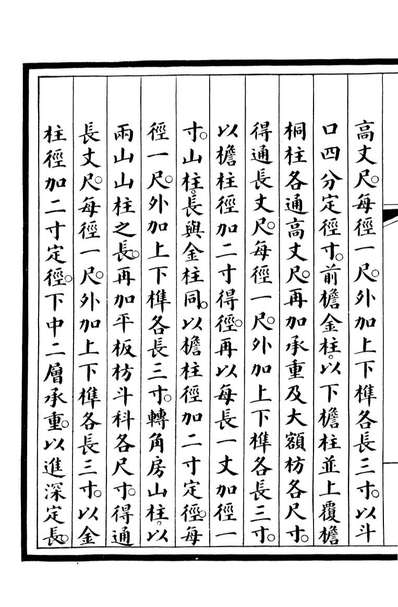 高丈尺。每徑一尺。外加上下榫各長三寸。以斗
口四分定徑寸。前檐金柱。以下檐柱並上覆檐
桐柱各通高丈尺。再加承重及大額枋各尺寸。
得通長丈尺。每徑一尺。外加上下榫各長三寸。
以檐柱徑加二寸得徑。再以每長一丈加徑一
寸。山柱。長與金柱同。以檐柱徑加二寸定徑。每
徑一尺。外加上下榫各長三寸。轉角房山柱。以
兩山山柱之長。再加平板枋斗科各尺寸。得通
長丈尺。每徑一尺。外加上下榫各長三寸。以金
柱徑加二寸定徑。下中二層承重。以進深定長。